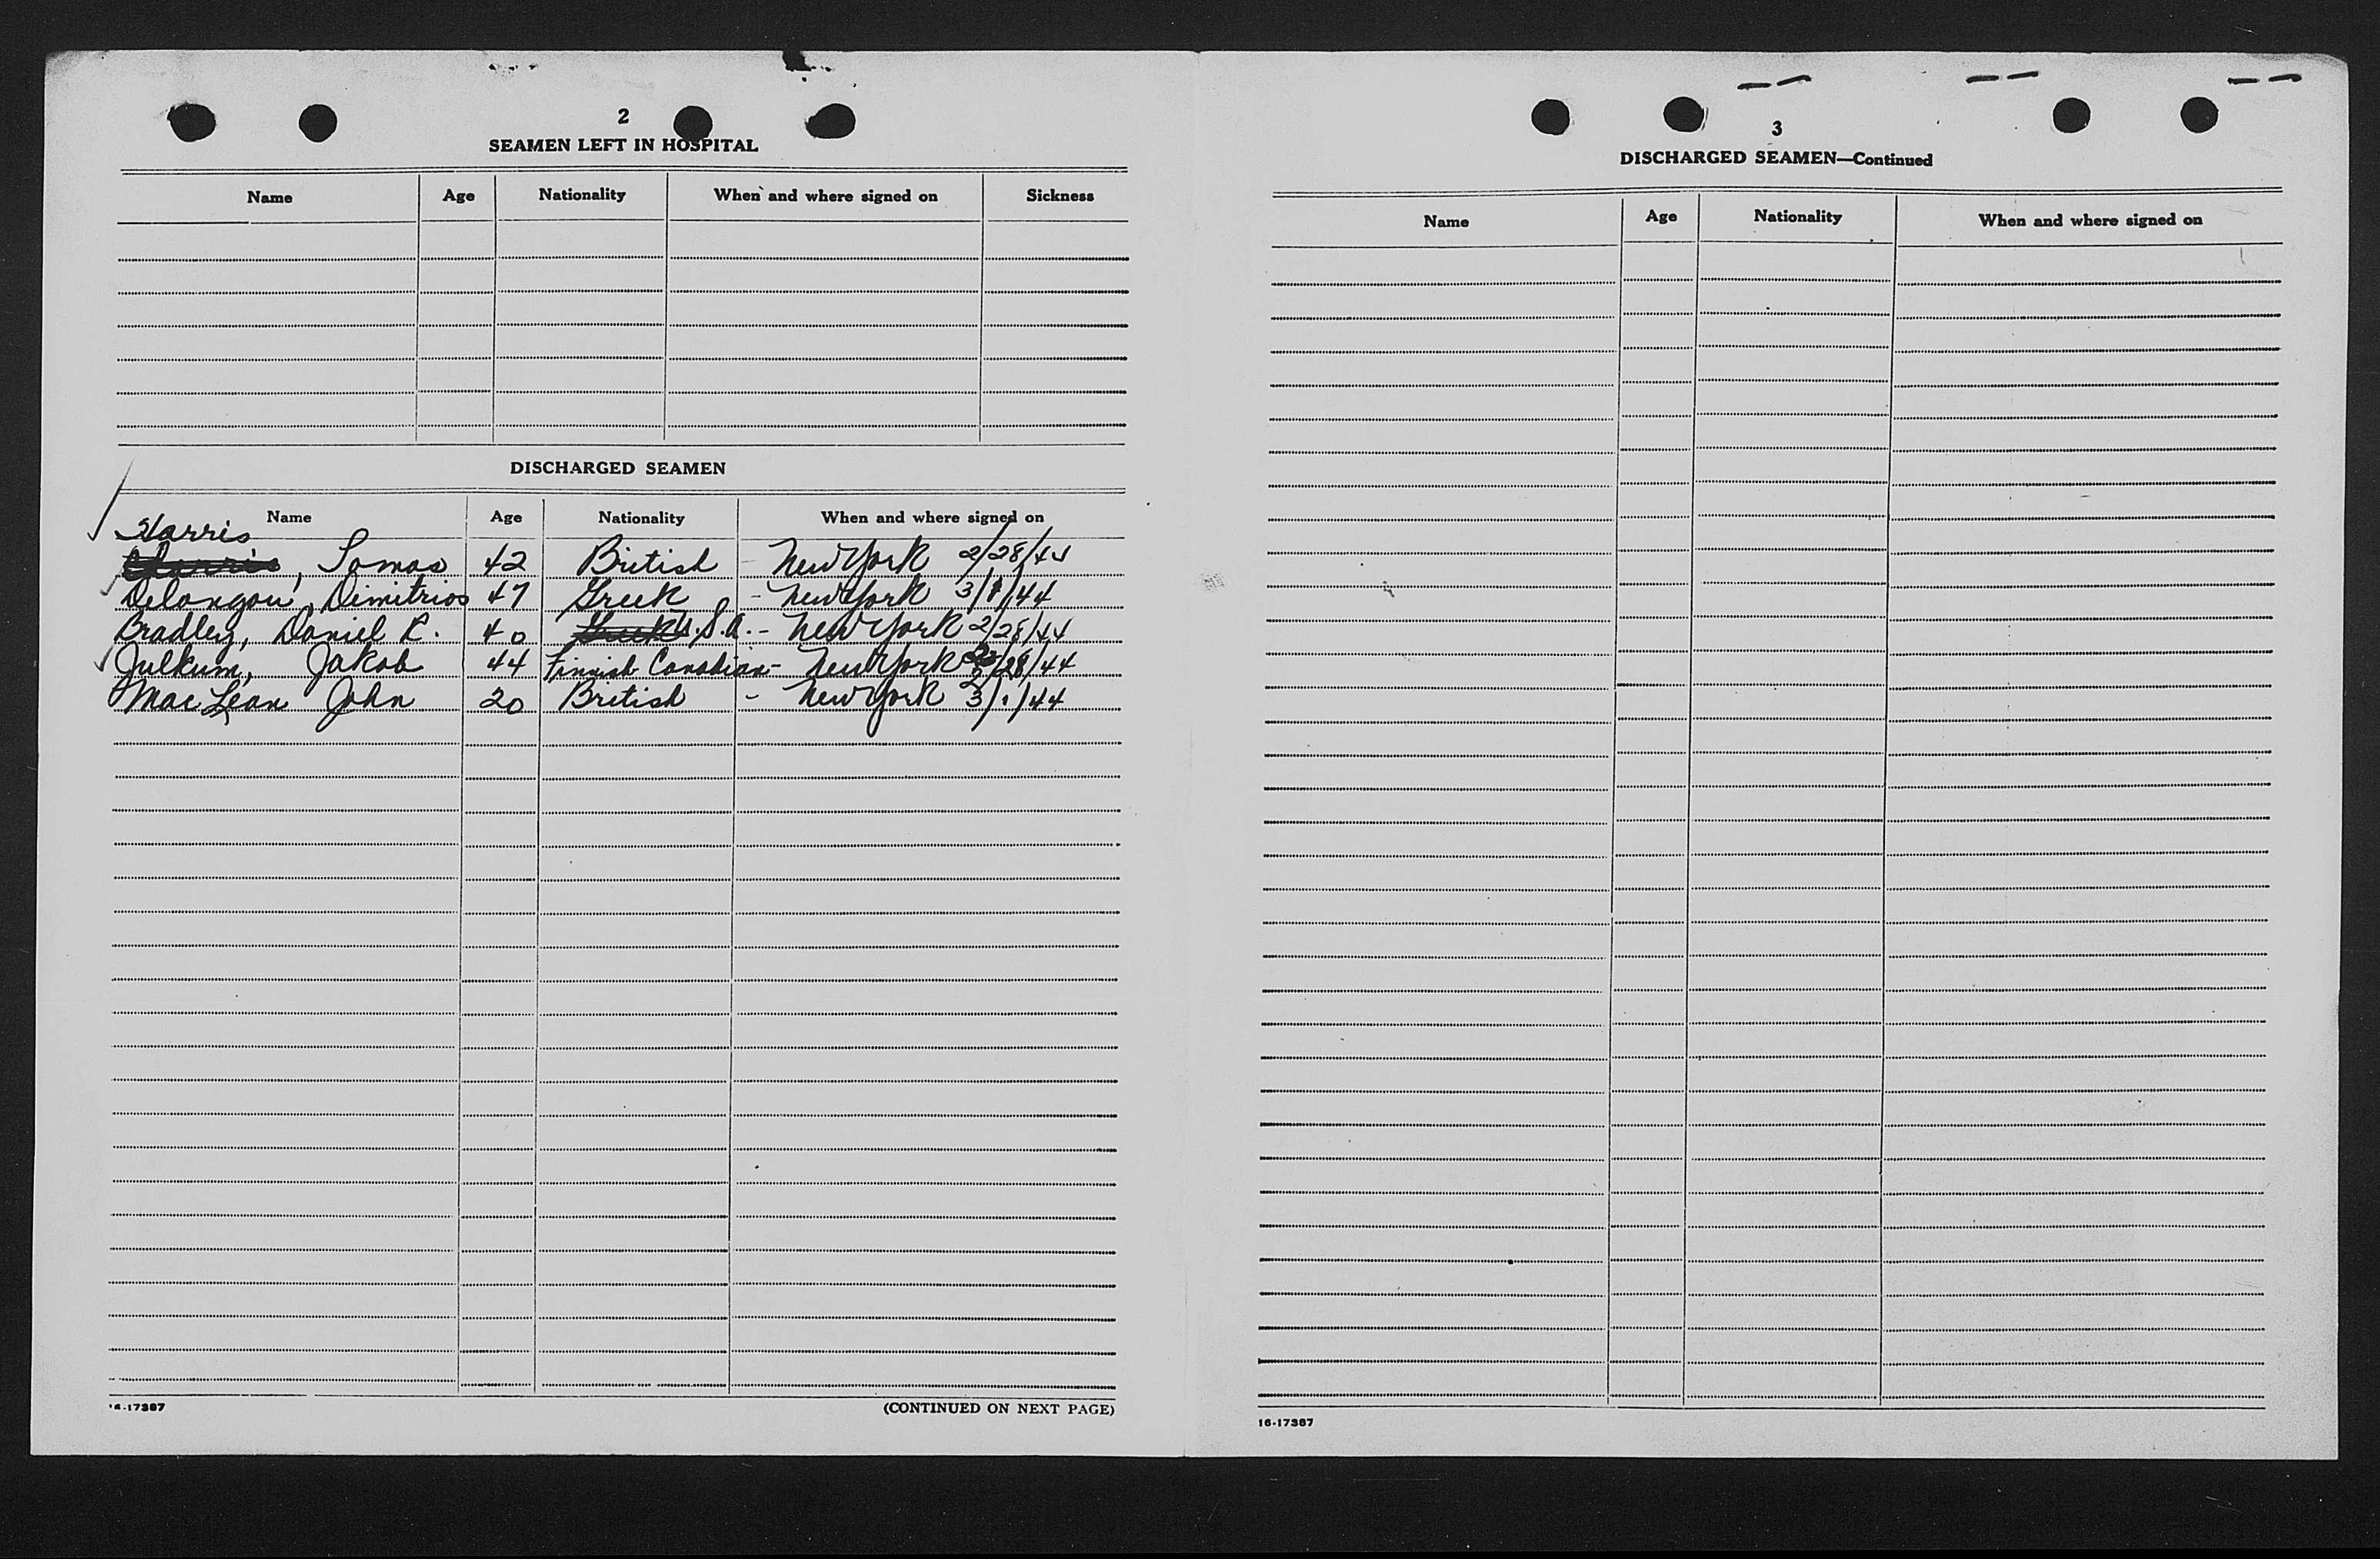 2
SEAMEN LEFT IN HOSPITAL
Name Age Nationality When and where signed on Sickness
DISCHARGED SEAMEN
Name Age Nationality When and where signed on
Harris
, Tomas 42 British - New York 2/28/44
Dimitrios 47 Greek - New York 3/1/44
Bradley, Daniel R. 40 U.S.A. - New York 2/28/44
Julkum, Jakob 44 Finnish Canadian - New York 2/28/44
MacLean John 20 British - New York 3/1/44
16-17387
(CONTINUED ON NEXT PAGE)
3
DISCHARGED SEAMEN—Continued
Name Age Nationality When and where signed on
16-17387